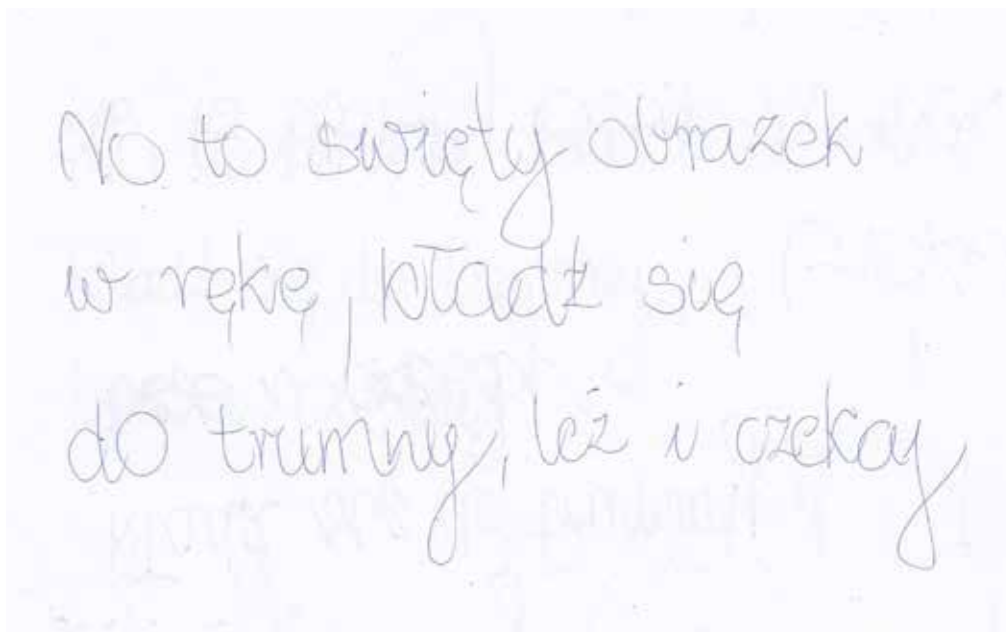 No to święty obrazek
w rękę, kładź się
do trumny, leż i czekaj